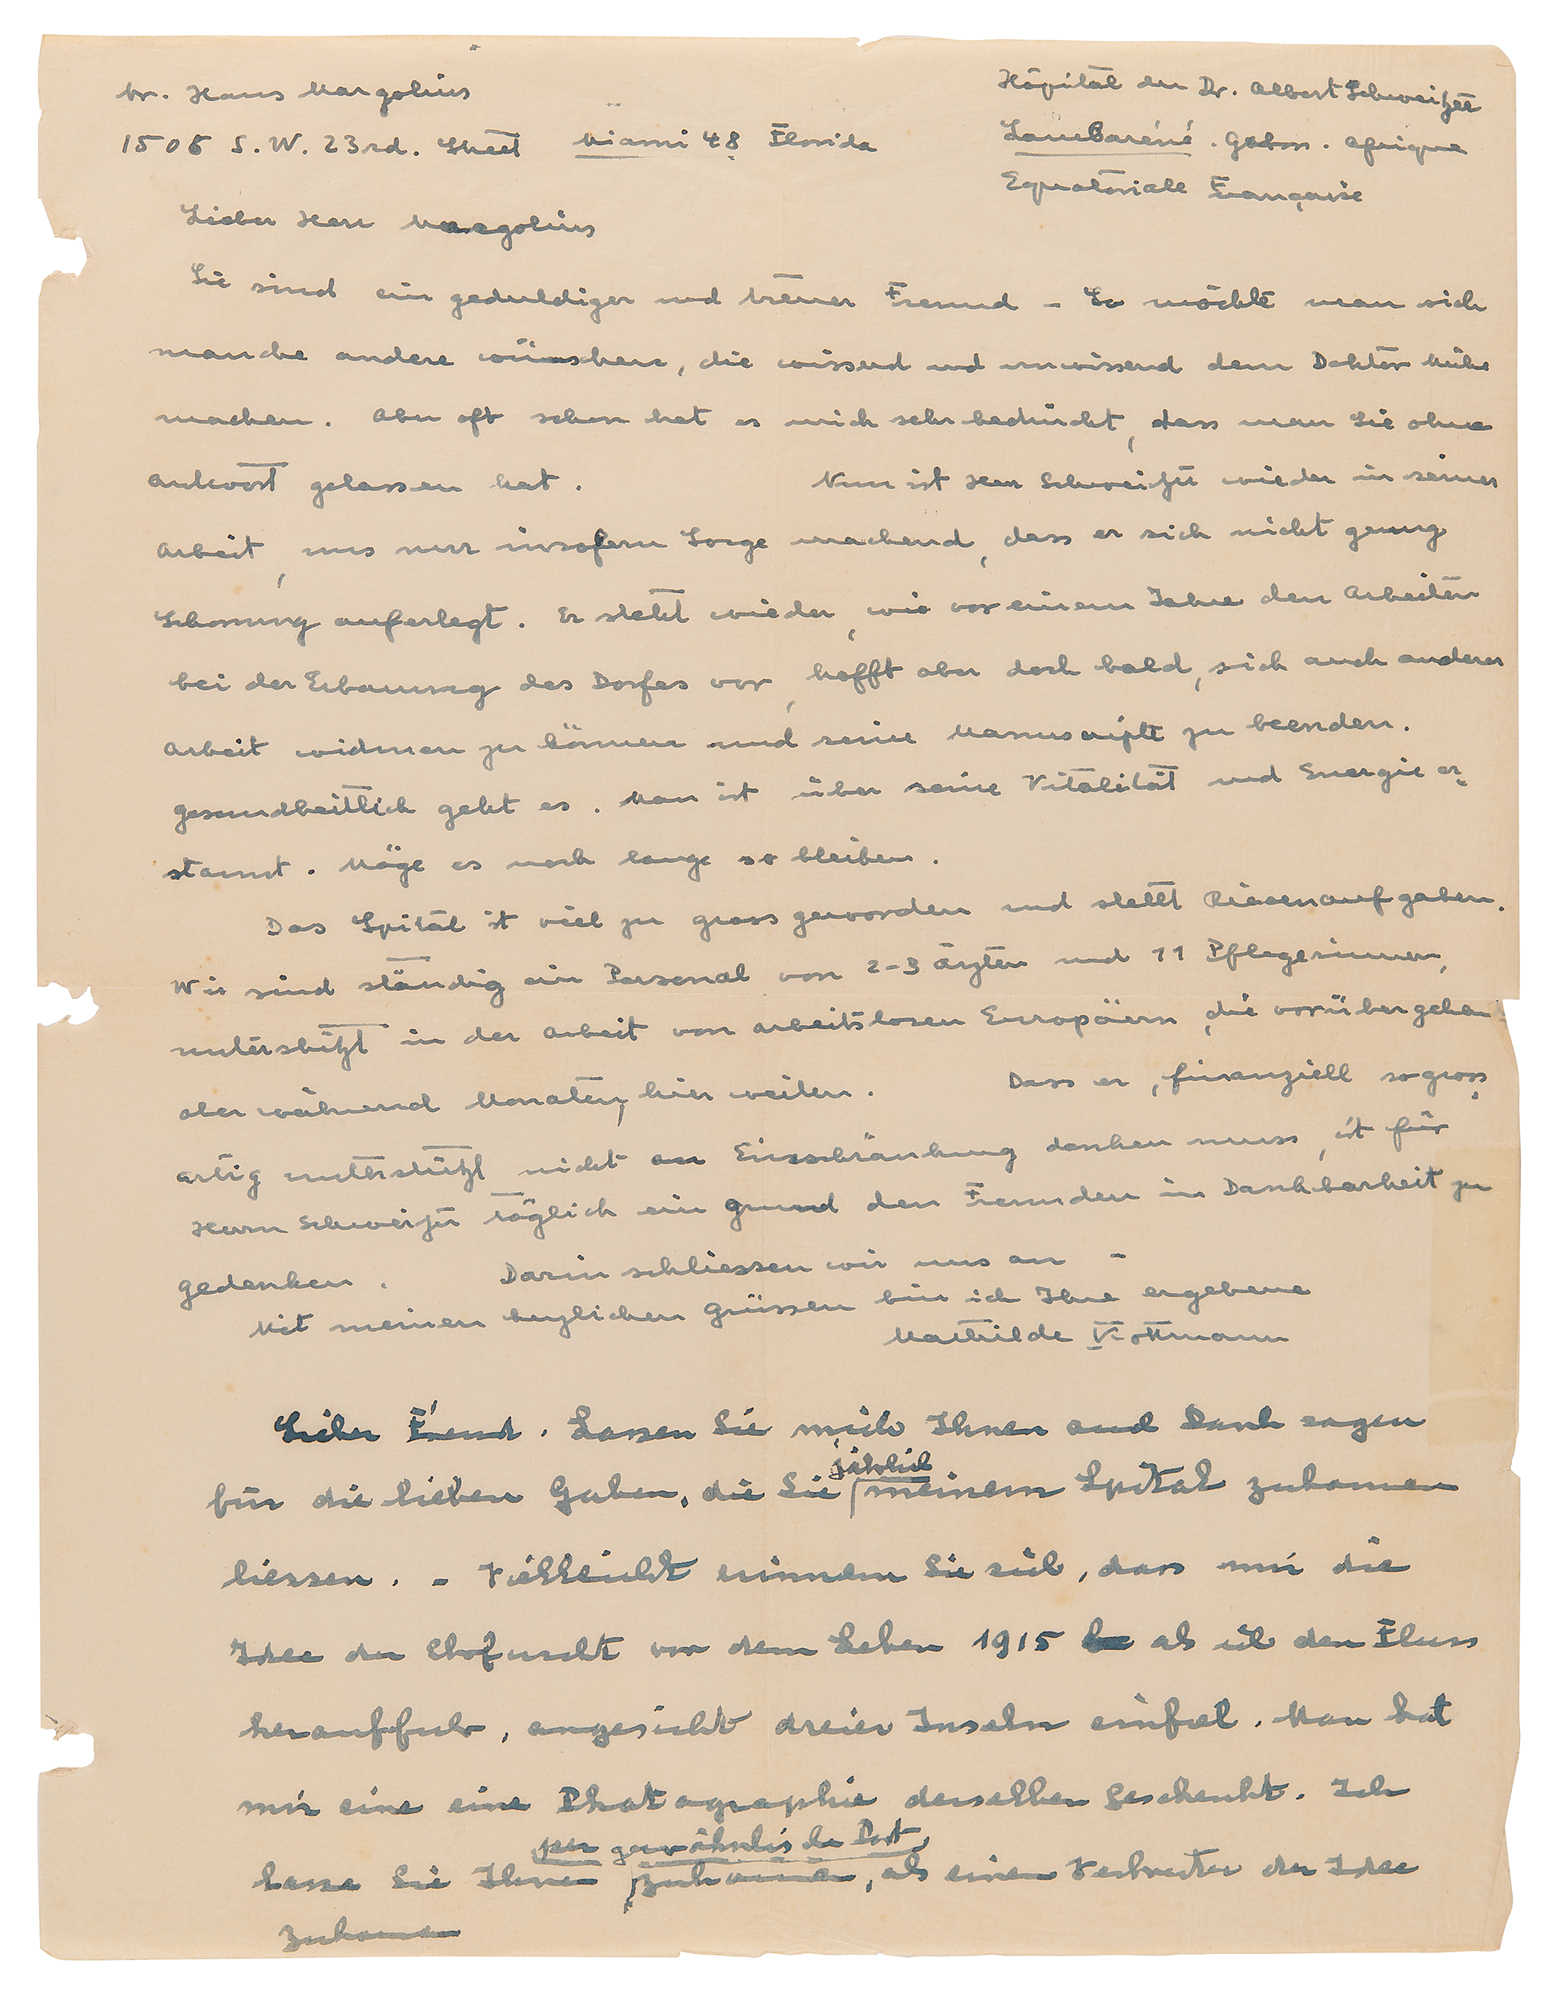 Dr. Hans Margolius
1506 S.W. 23rd. Street Miami 48 Florida
Hôpital du Dr. Albert Schweitzer
Lambaréné. Gabon. Afrique
Equatoriale Française
Lieber Herr Margolius
Sie sind ein geduldiger und treuer Freund – So möchte man sich
manche andere wünschen, die wissend und unwissend dem Doktor Mühe
machen. Aber oft schon hat es mich sehr bedrückt, dass man Sie ohne
Antwort gelassen hat. Nun ist Herr Schweitzer wieder in seiner
Arbeit, uns nur insofern Sorge machend, dass er sich nicht genug
Schonung auferlegt. Er steht wieder, wie vor einem Jahre den Arbeiten
bei der Erbauung des Dorfes vor, hofft aber doch bald, sich auch anderer
Arbeit widmen zu können und seine Manuscripte zu beenden.
Gesundheitlich geht es. Man ist über seine Vitalität und Energie er-
staunt. Möge es noch lange so bleiben.
Das Spital ist viel zu gross geworden und stellt Riesenaufgaben.
Wir sind ständig ein Personal von 2–3 Ärzten und 11 Pflegerinnen,
unterstützt in der Arbeit von arbeitslosen Europäern, die vorübergehen
aber während Monaten, hier weilen. Dass er, finanziell so gross-
artig unterstützt nicht an Einschränkung denken muss, ist für
Herrn Schweitzer täglich ein Grund den Freunden in Dankbarkeit zu
gedenken. Darin schliessen wir uns an –
Mit meinen herzlichen Grüssen bin ich Ihre ergebene
Mathilde Kottmann
Lieber Freund. Lassen Sie mich Ihnen auch Dank sagen
für die lieben Gaben, die Sie jährlich meinem Spital zukommen
liessen. – Vielleicht erinnern Sie sich, dass mir die
Idee der Ehrfurcht vor dem Leben 1915 als ich den Fluss
herauffuhr, angesicht dreier Inseln einfiel. Man hat
mir eine eine Photographie derselben geschenkt. Ich
per gewöhnliche Post
lasse Sie Ihnen zukommen, als einen Vertreter der Idee
zukommen